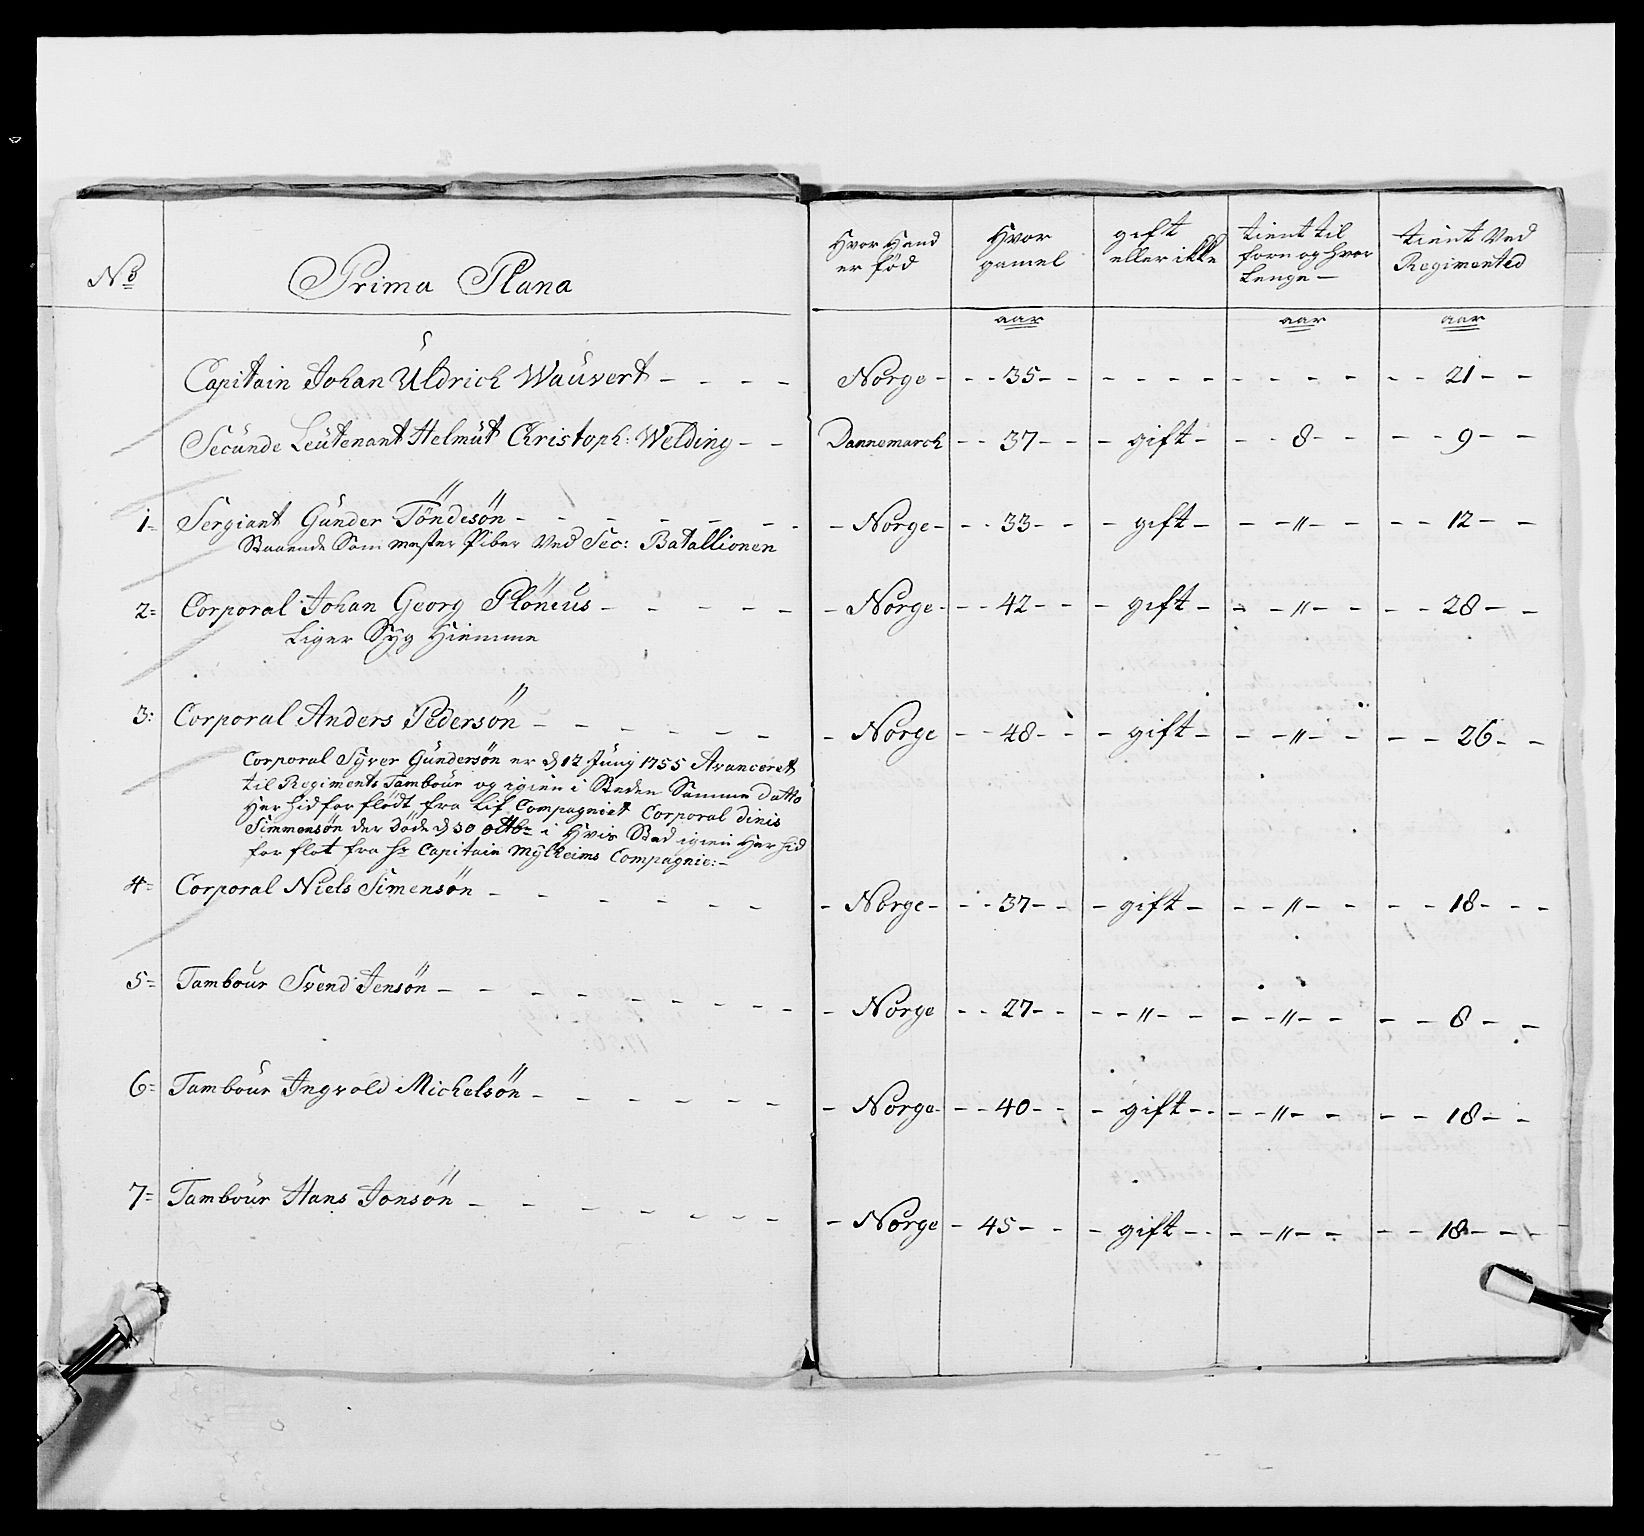 No Prima Plana Hvor Hand er föd Hvor gamel gift eller ikke tient til forn og hvor Lenge tient Ved Regimented
aar aar aar
Capitain Johan Uldrich Wauvert - - - - Norge - - - 35 - - - - - - - - - - - - - 21 - -
Secunde Leutenant Helmut Christoph: Welding - - Dannemarch - - 37 - - - gift - - - 8 - - - - 9 - -
1= Sergiant Gunder Töndesön - - - - - - - - Norge - - - 33 - - - gift - - - " - - - - 12 - -
Staaende Som mester Piber Ved Sec: Batallionen
2= Corporal Johan Georg Plöneus - - - - - - Norge - - - 42 - - - gift - - - " - - - - 28 - -
Liger Syg Hiemme
3: Corporal Anders Pedersön - - - - - - - Norge - - 48 - - - gift - - - " - - - - 26 - -
Corporal Syver Gundersön er d 12 Juny 1755 Avanceret
til Regiments Tambour og igien i Steden Samme Datto
Her hid forflödt fra Lif Compagniet Corporal dinis
Simmensön der döde d 30 octbr i Hvis Sted igien Her hid
forflöt fra Hr Capitain Mylheims Compagnie:-
4= Corporal Niels Simensön - - - - - - Norge - - - 37 - - - gift - - - " - - - - 18 - - -
5= Tambour Svend Jensön - - - - - - - - - - Norge - - 27 - - - - " - - - - " - - - - 8 - -
6= Tambour Ingvold Michelsön - - - - - - - Norge - - - 40 - - - gift - - - - " - - - - 18 - -
7= Tambour Hans Jonsön - - - - - - - Norge - 45 - - - gift - - - - " - - - - 18 - - -